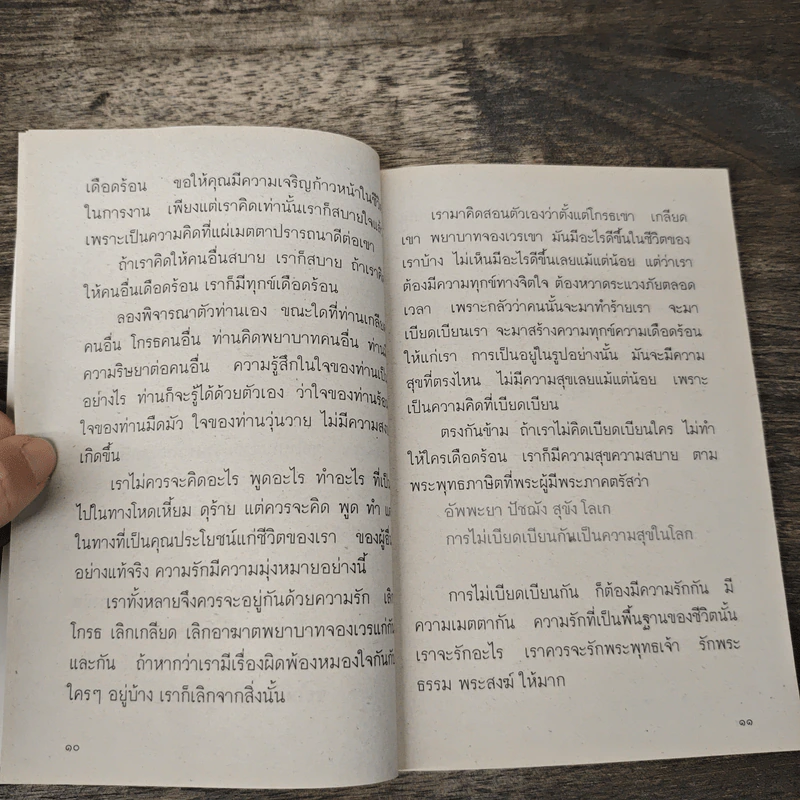 เดือดร้อน ขอให้คุณมีความเจริญก้าวหน้าใน
ในการงาน เพียงแต่เราคิดเท่านั้นเราก็สบายใจ
เพราะเป็นความคิดที่แผ่เมตตาปรารถนาดีต่อเขา
ถ้าเราคิดให้คนอื่นสบาย เราก็สบาย ถ้าเรา
ให้คนอื่นเดือดร้อน เราก็มีทุกข์เดือดร้อน
ลองพิจารณาตัวท่านเอง ขณะใดที่ท่านเกลีย
คนอื่น โกรธคนอื่น ท่านคิดพยาบาทคนอื่น
ความริษยาต่อคนอื่น ความรู้สึกในใจของท่าน
อย่างไร ท่านก็จะรู้ได้ด้วยตัวเอง ว่าใจของท่าน
ใจของท่านมืดมัว ใจของท่านวุ่นวาย ไม่มีความ
เกิดขึ้น
เราไม่ควรจะคิดอะไร พูดอะไร ทำอะไร ที่
ไปในทางโหดเหี้ยม ดุร้าย แต่ควรจะคิด พูด ทำ
ในทางที่เป็นคุณประโยชน์แก่ชีวิตของเรา ของ
อย่างแท้จริง ความรักมีความมุ่งหมายอย่างนี้
เราทั้งหลายจึงควรจะอยู่กันด้วยความรัก
โกรธ เลิกเกลียด เลิกอาฆาตพยาบาทจองเวรแก่
และกัน ถ้าหากว่าเรามีเรื่องผิดพ้องหมองใจกัน
ใครๆ อยู่บ้าง เราก็เลิกจากสิ่งนั้น
๑๐
เรามาคิดสอนตัวเองว่าตั้งแต่โกรธเขา เกลียด
เขา พยาบาทจองเวรเขา มันมีอะไรดีขึ้นในชีวิตของ
เราบ้าง ไม่เห็นมีอะไรดีขึ้นเลยแม้แต่น้อย แต่ว่าเรา
ต้องมีความทุกข์ทางจิตใจ ต้องหวาดระแวงภัยตลอด
เวลา เพราะกลัวว่าคนนั้นจะมาทำร้ายเรา จะมา
เบียดเบียนเรา จะมาสร้างความทุกข์ความเดือดร้อน
ให้แก่เรา การเป็นอยู่ในรูปอย่างนั้น มันจะมีความ
สุขที่ตรงไหน ไม่มีความสุขเลยแม้แต่น้อย เพราะ
เป็นความคิดที่เบียดเบียน
ตรงกันข้าม ถ้าเราไม่คิดเบียดเบียนใคร ไม่ทำ
ให้ใครเดือดร้อน เราก็มีความสุขความสบาย ตาม
พระพุทธภาษิตที่พระผู้มีพระภาคตรัสว่า
อัพพะยา ปัชฌัง สุขัง โลเก
การไม่เบียดเบียนกันเป็นความสุขในโลก
การไม่เบียดเบียนกัน ก็ต้องมีความรักกัน มี
ความเมตตากัน ความรักที่เป็นพื้นฐานของชีวิตนั้น
เราจะรักอะไร เราควรจะรักพระพุทธเจ้า รักพระ
ธรรม พระสงฆ์ ให้มาก
๑๑